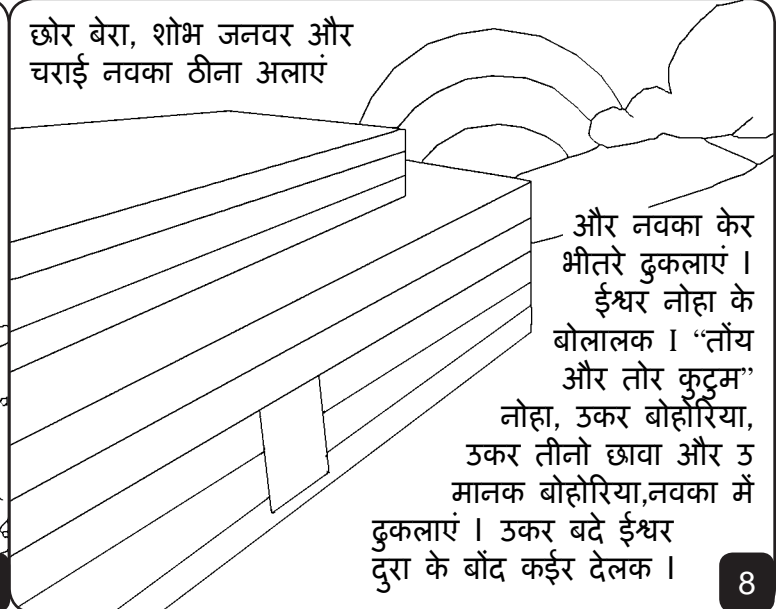 छोर बेरा, शोभ जनवर और
चराई नवका ठीना अलाएं
और नवका केर
भीतरे ढुकलाएं ।
ईश्वर नोहा के
बोलालक I “तोंय
और तोर कुटुम”
नोहा, उकर बोहोरिया,
उकर तीनो छावा और उ
मानक बोहोरिया,नवका में
ढुकलाएं । उकर बदे ईश्वर
दुरा के बोंद कईर देलक ।
8